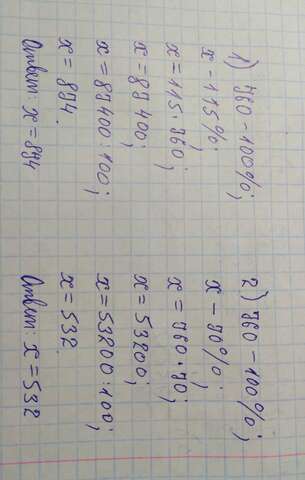 1) 760 - 100%;
x - 115%;
x = 115 · 760;
x = 87400;
x = 87400 : 100;
x = 874.
Ответ: x = 874
2) 760 - 100%;
x - 70%;
x = 760 · 70;
x = 53200;
x = 53200 : 100;
x = 532.
Ответ: x = 532